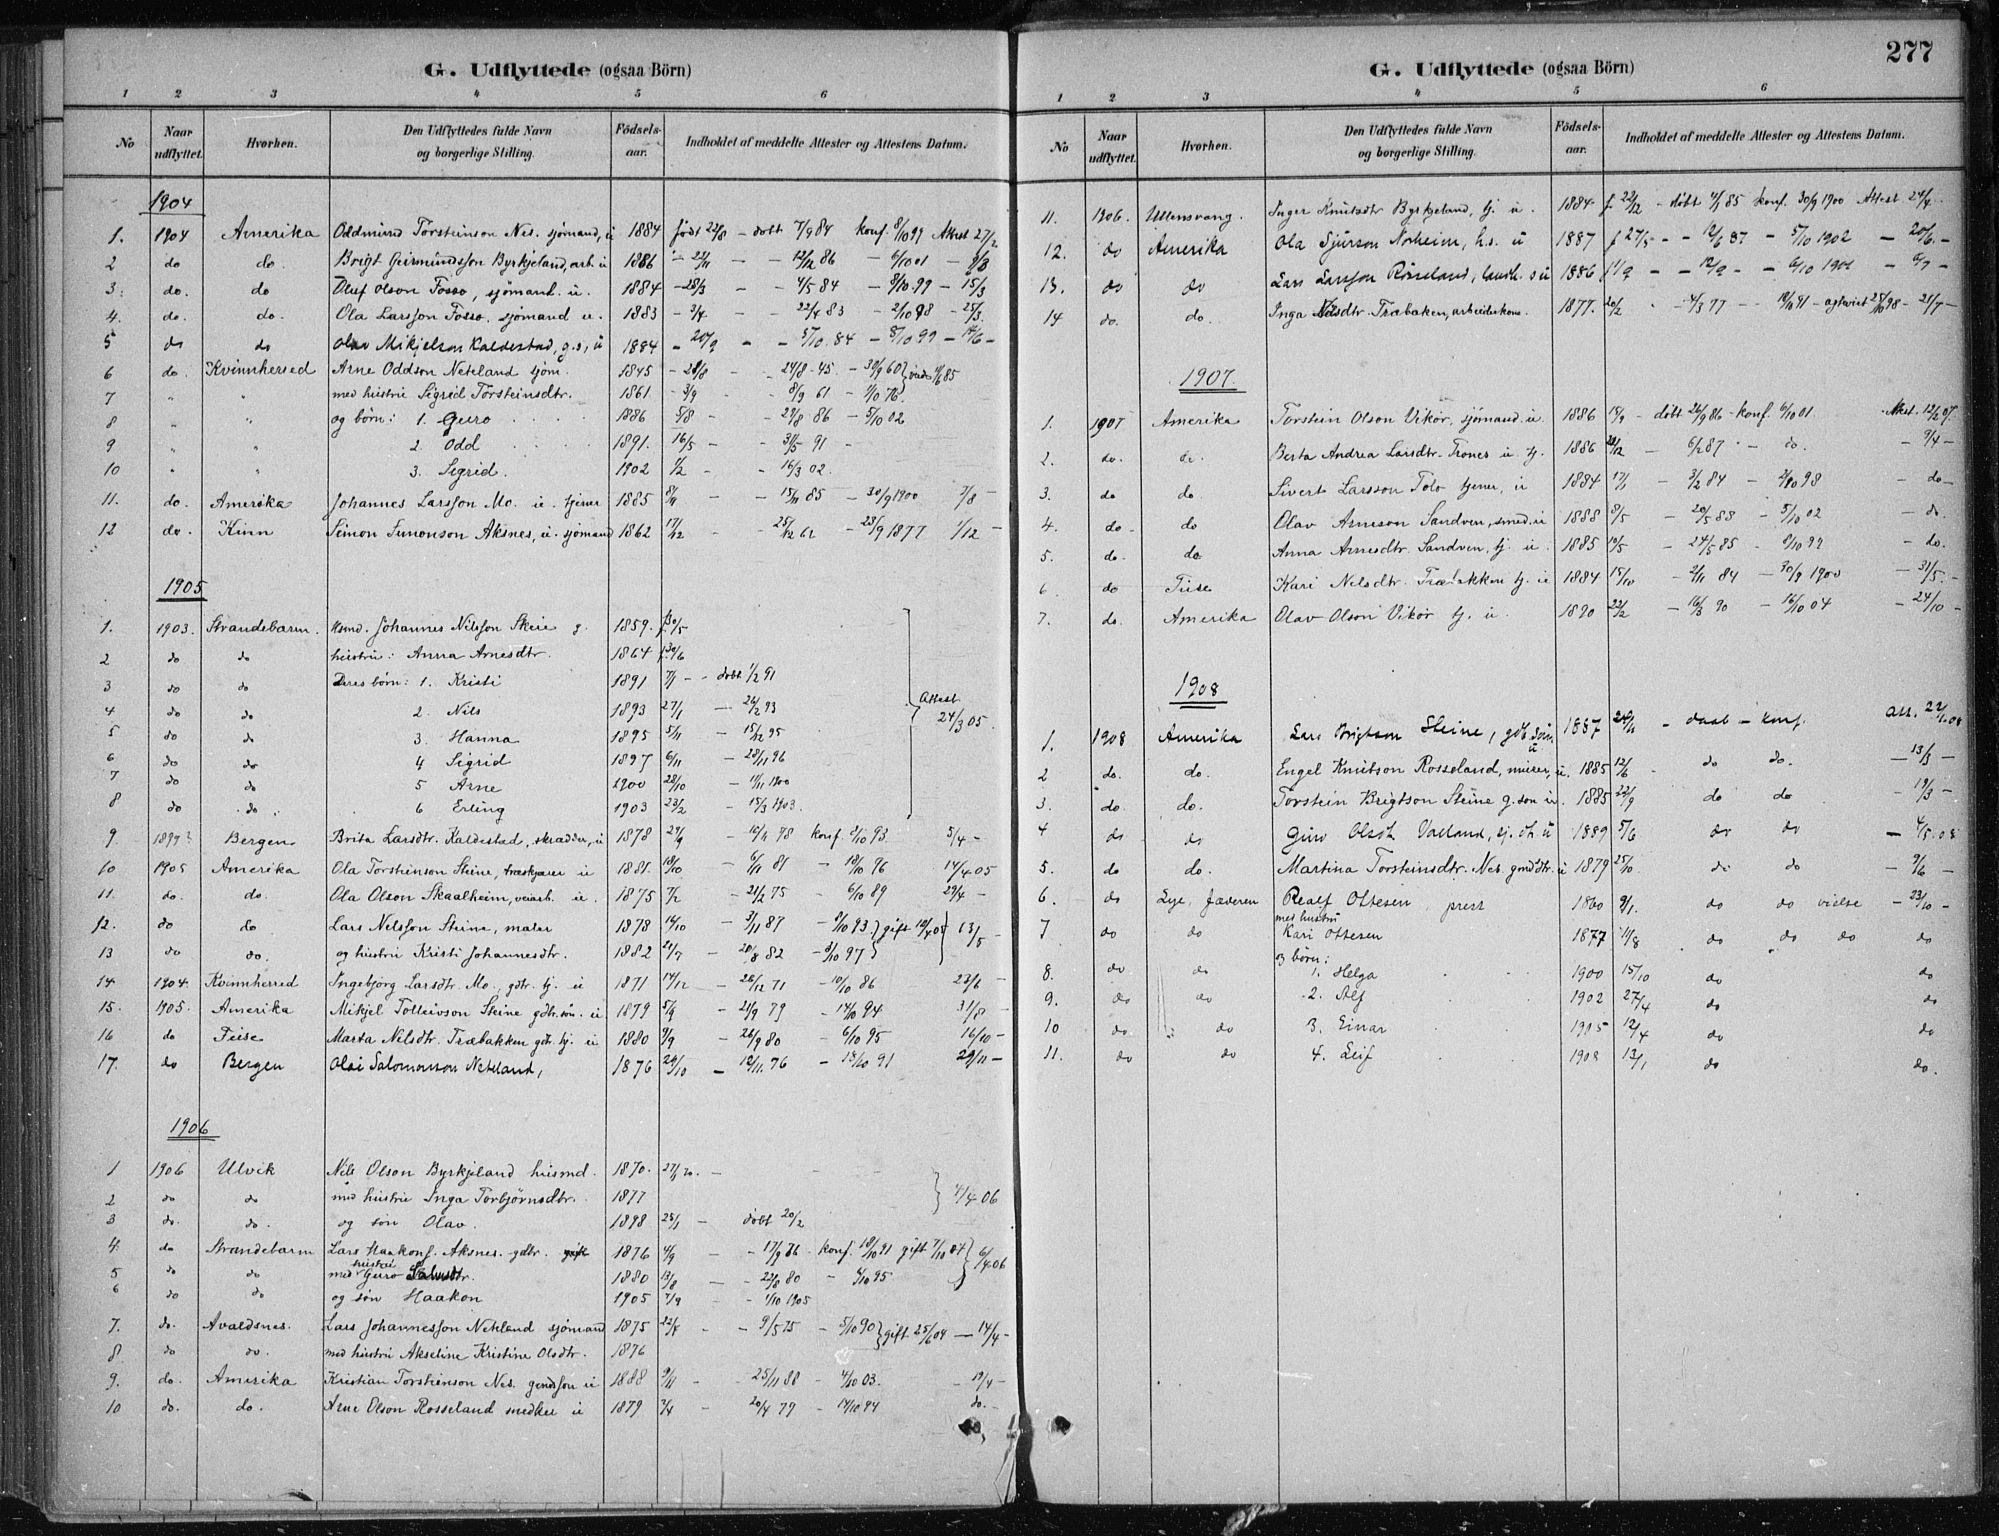 G. Udflyttede (ogsaa Börn)
1 2 3 4 5 6
No Naar udflyttet. Hvorhen. Den Udflyttedes fulde Navn og borgerlige Stilling. Födsels-aar. Indholdet af meddelte Attester og Attestens Datum.
1904
1. 1904 Amerika Oddmund Torsteinson Nes, sjömand, u 1884 född 22/8 - döbt 7/9 84 konf. 8/10 99 Attest 27/2
2 do do. Brigt Geirmundsson Byrkjeland, arb. u 1886 - - 12/12 86 - 6/10 01 -
3. do. do Oluf Olson Fosso, sjömand u. 1884 - 28/3 - - 4/5 84 - 8/10 99 - 15/3
4. do. do. Ola Larsson Fosso, sjömand u. 1883 - 3/4 - 22/4 83 - 2/10 98 - 25/3.
5 do do Olav Mikjelson Kaldestad, g.s, u 1884 - 20/9 - - 5/10. 84 - 8/10 99 - 14/6 -
6 do. Kvinnherred Arne Oddson Neteland sjöm. 1845 - 28/8 - 24/8 - 45. - 30/9 60
7 " " med hustru Sigrid Torsteinsdtr. 1861 - 3/9 8/9 61 - 1/10 76
8 " " og börn: 1. Guro 1886 5/8 - - 29/8 86 - 5/10 02
9 " " 2. Odd 1891. 16/5 - - 31/5 91 -
10 " " 3. Sigrid. 1902 1/2 - 16/3 02.
11. do. Amerika Johannes Larsson Mo. u. tjener 1885 8/11 - - 15/11 85 - 30/9 1900 7/8 -
12 do. Kinn Simon Simonson Aksnes, u. sjömand 1862 17/12 - - 25/12 62 - 28/9 1877 1/12 -
1905
1. 1903. Strandebarm. Husmd. Johannes Nilsson Skeie g. 1859. f. 30/5
2 do do hustru: Anna Arnesdtr. 1864 f. 30/6
3 do do Deres börn: 1. Kristi 1891 7/1 - - döbt 1/2 91
4 do do 2. Nils 1893 27/1 - 26/2 93 Attest 24/3 05.
5 do do 3. Hanna 1895 5/11 - 15/12 95
6 do do. 4 Sigrid 1897 6/11 - 28/11 96
7 do do 5 Arne 1900 28/10 - 11/11 1900
8 do do. 6 Erling 1903 23/2 - 15/3 1903.
9. 1897? Bergen Brita Larsdtr. Kaldestad, skrædder, u 1878 27/9 - 10/11 78 konf. 8/10 93 5/4 -
10 1905 Amerika Ola Torsteinson Steine, træskjærer u 1881. 18/10 - 6/11 81 - 18/10 96 14/4 05
11. do. do. Ola Olson Skaalheim, veiarb. u. 1875 7/2 - 21/2 75 - 6/10 89 29/4 -
12. do do. Lars Nelsson Steine, maler 1878 14/10 - 3/11 87 - 8/10 93. gift 12/4 05 13/5
13 do do. og hustru Kristi Johannesdtr. 1882 21/7 - 20/8 82 - 3/10 97
14 1904. Kvinnherred Ingebjörg Larsdtr. Mo., gdtr. tj. u 1871 14/12 - 26/12 71 - 10/10 86 23/6 -
15. 1905. Amerika Mikjel Tolleivson Steine gdtr. sön. u 1879 5/9 - 21/9 79 - 14/10 94 31/8 -
16 do Teise Marta Nilsdtr. Træbakken gdtr. tj. u 1880 9/9 - 26/9 80 - 6/10 95 16/10 -
17. do Bergen Olai Salomonson Neteland, 1876 29/10 - 12/11. 76 - 18/10 91 29/11 -
1906
1 1906 Ulvik Nils Olson Byrkjeland husmd. 1870. -
2 do do med hustru Inga Torbjörnsdtr. 1877 7/4 06
3 do. do. og sön Olav. 1898 25/1 - döbt 20/2
4. do Strandebarm Lars Haakons. Aksnes. gdtr. 1876 4/9 - 17/9 76 - konf. 18/10 91 gift 6/4 06
5 do do med hustru Guro 1880 13/8 - 22/8 80 - 6/10 95
6 do do og sön Haakon 1905 7/9 - - 1/10 1905
7. do. Avaldsnes. Lars Johannesson Neteland sjömand 1875 22/4 - - 9/5 75 - 5/10 90 gift 25/6 04 - 14/4 -
8 do do. med hustru Akseline Kristine Olsdtr. 1876
9. do. Amerika Kristian Torsteinson Nes. gmdsson u 1888 9/11 - 25/11 88 - 4/10 03. - 19/4 -
10 do. do. Arne Olson Rosseland snedker u 1879 3/4 - 20/4 79 - 14/10 94 do. -
277
G. Udflyttede (ogsaa Börn)
1 2 3 4 5 6
No Naar udflyttet. Hvorhen. Den Udflyttedes fulde Navn og borgerlige Stilling. Födsels-aar. Indholdet af meddelte Attester og Attestens Datum.
11. 1906. Ullensvang. Inger Knutsdtr Byrkjeland, tj. u. 1884 f. 22/12 - döbt 4/1 85 konf. 30/9 1900 Attest 24/4.
12. do Amerika Ola Sjurson Norheim, h.s. u 1887 f 27/5 - - 12/6 87 - 5/10 1902 - 20/6 -
13. do do Lars Larsson Rosseland, u 1886 - - 12/9 - - 6/10 1901 - 6/7 -
14 do. do. Inga Nilsdtr. Træbakken, arbeiderkone. 1877. 20/2 4/3 77 - - 18/10 91 - - 21/7 -
1907.
1. 1907 Amerika Torstein Olson Vikör, sjömand. u. 1886 15/9 - döbt 26/9 86 - konf. 6/10 01 Attest 12/2 07.
2. do. do. Berta Andrea Larsdtr. Trones u. tj. 1886 28/12 - 6/2 87 - do. - 9/4 -
3. do do. Sivert Larsson Tolo tjener, u 1884 17/1 - 3/2 84 - 2/10 98 - do -
4. do. do Olav Arneson Sandven, smed. u 1888 8/5 - 20/5 88 - 5/10 02 - do.
5. do. do. Anna Arnesdtr. Sandven, tj. u. 1885 10/5 - 24/5 85 - 8/10 99 - do.
6 do. Teise Kari Nelsdtr. Træbakken tj. u 1884 15/10 - 2/11 84 - 30/9 1900 - 31/5. -
7. do. Amerika Olav Olson Vikör tj. u. 1890 22/2 - 16/3 90 - 16/10 04 - 24/10 -
1908
1. 1908 Amerika Lars Brigtson Steine, gdb.sön u 1887 - daab - konf. att. 22/1 08
2 do. do. Engel Knutson Rosseland, murer, u. 1885 12/6 - do do. - 13/3 -
3. do. do. Torstein Brigtson Steine g.son u. 1885 22/9 do do - 19/3 -
4 do do Guro Olsdt. Valland, u 1889 5/6 do do - 4/5. 08
5. do do. Martina Torsteinsdtr. Nes. gmddtr. u 1879 25/10 do do - 9/6 -
6. do Lye, Jæderen Realf Ottesen, prest 1860 9/1. do do vielse - 23/10 -
7 do do med hustru Kari Ottesen 1877 11/8 do do do do
og börn:
8. do do 1. Helga 1900 15/10 do do
9. do do 2. Alf 1902 27/4 do do
10 do. do 3. Einar 1905 12/4 do do
11. do do 4. Leif 1908 13/1 do do.